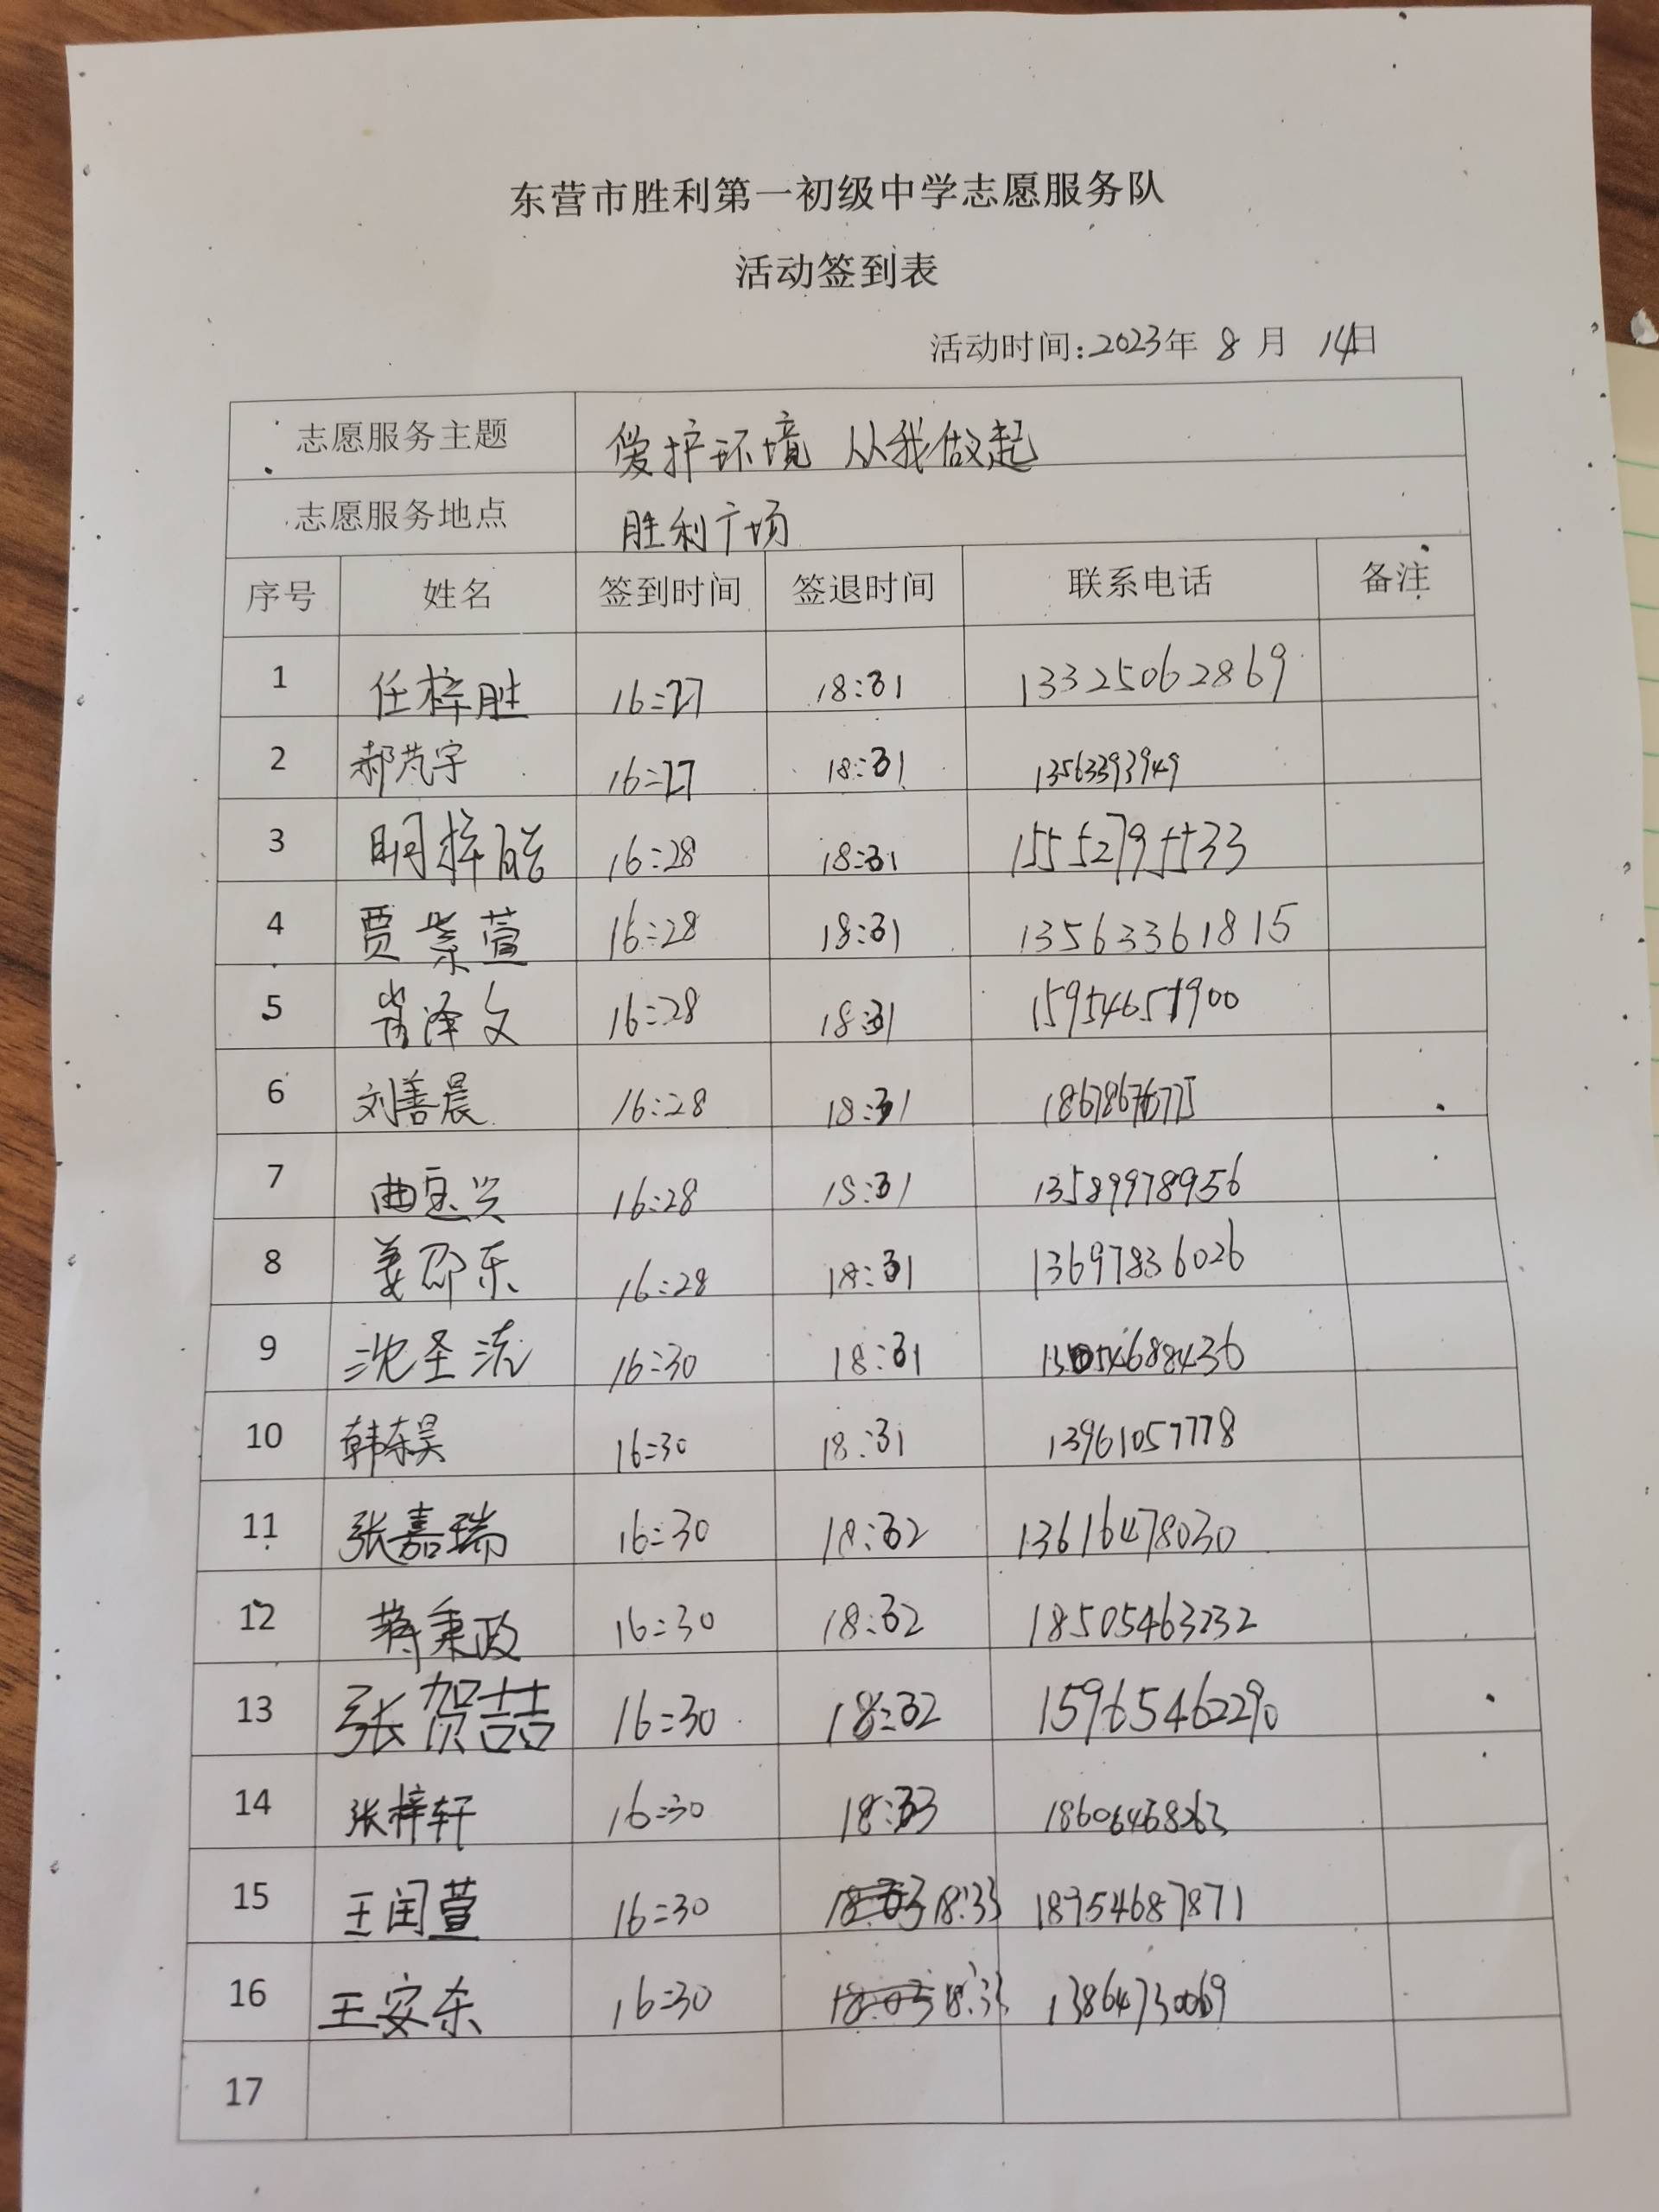 东营市胜利第一初级中学志愿服务队
活动签到表
活动时间:2023年 8 月 14日
志愿服务主题 爱护环境 从我做起
志愿服务地点 胜利广场
序号 姓名 签到时间 签退时间 联系电话 备注
1 任梓胜 16:27 18:31 13325062869
2 郝芃宇 16:27 18:31 13563393949
3 明梓皓 16:28 18:31 15552795533
4 贾紫萱 16:28 18:31 13563361815
5 肖泽文 16:28 18:31 15954657900
6 刘善晨 16:28 18:31
7 曲宝兴 16:28 18:31 13589978956
8 姜邵东 16:28 18:31 13697836026
9 沈圣流 16:30 18:31 13054688436
10 韩东昊 16:30 18:31 13961057778
11 张嘉瑞 16:30 18:32 13616478030
12 蒋秉政 16:30 18:32 18505463232
13 张贺喆 16:30 18:32 15965462290
14 张梓轩 16:30 18:33 18606468263
15 王闰萱 16:30 18:33 18954687871
16 王安东 16:30 18:33 13864730069
17